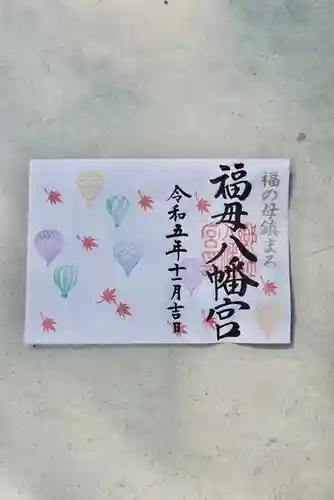 福の母鎮まる
福母八幡宮
令和五年十一月吉日